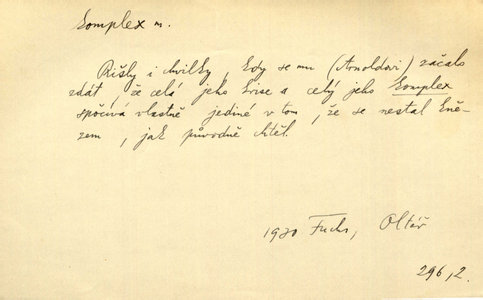 komplex m.
Přišly i chvilky, kdy se mu (Arnoldovi) začalo
zdát, že celá jeho krise a celý jeho komplex
spočívá vlastně jedině v tom, že se nestal kně-
zem, jak původně chtěl.
1930 Fuchs, Oltář
296,2